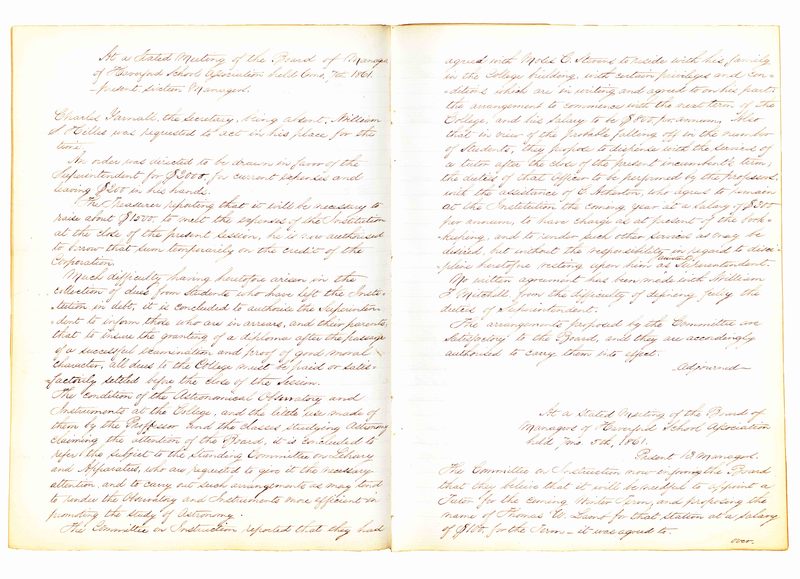 At a Stated Meeting of the Board of Manage
of Haverford School Association held 6mo. 7th 1861.
present sixteen Managers.
Charles Yarnall, the Secretary, being absent, William
S Hilles was requested to act in his place for the
time.
An order was directed to be drawn in favor of the
Superintendent for $2000, for current expenses and
leaving $200 in his hands.
The Treasurer reporting that it will be necessary to
raise about $1500, to meet the expenses of the Institution
at the close of the present session, he is now authorised
to borrow that sum temporarily on the credit of the
Corporation.
Much difficulty having heretofore arisen in the
collection of dues from Students who have left the Insti-
tution in debt, it is concluded to authorise the Superinten-
dent to inform those who are in arrears, and their parents,
that to insure the granting of a diploma after the passage
of a successful examination and proof of good moral
character, all dues to the College must be paid or satis-
factorily settled before the close of the Session.
The condition of the Astronomical Observatory and
Instruments at the College, and the little use made of
them by the Proffessor and the classes studying Astronomy
claiming the attention of the Board, it is concluded to
refer the subject to the Standing Committee on Library
and Apparatus, who are requested to give it the necessary
attention and to carry out such arrangements as may tend
to render the Observatory and Instruments more efficient in
promoting the study of Astronomy.
The Committee on Instruction reported that they had
agreed with Moses C. Stevens to reside with his family
in the College building, with certain privileges and con-
ditions which are in writing and agreed to on his part,
the arrangement to commence with the next term of the
College, and his salary to be $800 per annum, Also
that in view of the probable falling off in the number
of Students, they propose to dispense with the services of
a tutor after the close of the present incumbent's term;
the duties of that Officer to be performed by the professors
with the assistance of C. Atherton, who agrees to remain
at the Institution the coming year at a salary of
per annum, to have charge as at present of the book-
keeping, and to render such other services as may be
desired, but without the responsibility in regard to disci-
pline heretofore resting upon him as Superintendent.
No written agreement has been made with William
F Mitchell from the difficulty of defining fully the
duties of Superintendent.
The arrangements proposed by the Committee are
satisfactory to the Board, and they are accordingly
authorised to carry them into effect.
Adjourned
At a Stated Meeting of the Board of
Managers of Haverford School Association
held 7mo. 5th, 1861.
Present 13 Managers.
The Committee on Instruction now inform the Board
that they believe that it will be needful to appoint a
Tutor for the coming Winter Term, and proposing the
name of Thomas W. for that station at a salary
of for the Term – it was agreed to.
over.